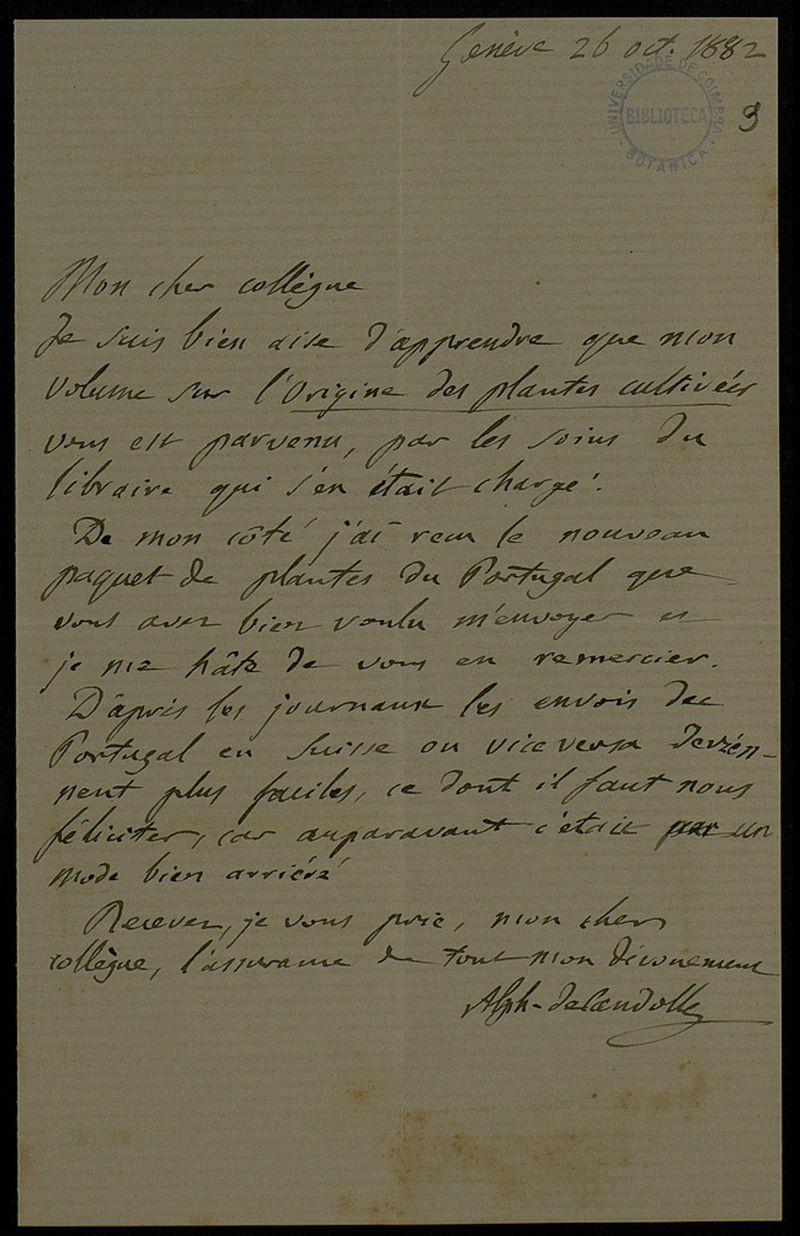 Genève 26 oct. 1882
UNIVERSIDADE DE COIMBRA
BIBLIOTECA
BOTANICA
9
Mon cher collègue
Je suis bien aise d'apprendre que mon
volume sur l'Origine des plantes cultivées
vous est parvenu, par les soins du
libraire qui s'en était chargé.
De mon côté j'ai reçu le nouveau
paquet de plantes du Portugal que
vous avez bien voulu m'envoyer et
je me hâte de vous en remercier.
D'après les journaux les envois de
Portugal en Suisse ou vice versa devien-
nent plus faciles, ce dont il faut nous
féliciter, car auparavant c'était par un
mode bien arriéré
Recevez, je vous prie, mon cher
collègue, l'assurance de tout mon dévouement
Alph. DeCandolle